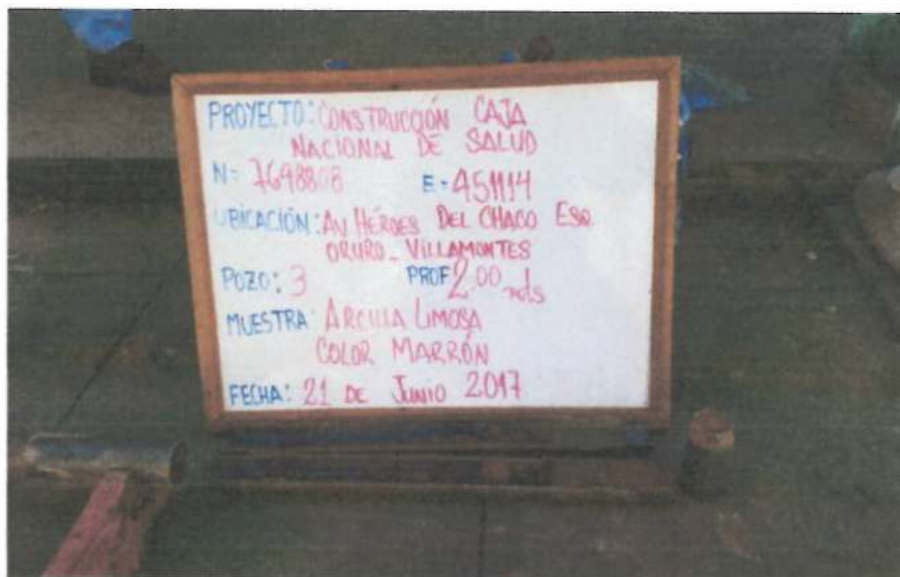 PROYECTO: CONSTRUCCIÓN CAJA
NACIONAL DE SALUD
N= 7698808 E= 451114
UBICACIÓN: AV. HÉROES DEL CHACO ESQ.
ORURO - VILLAMONTES
POZO: 3 PROF 2.00 mts
MUESTRA: ARCILLA LIMOSA
COLOR MARRÓN
FECHA: 21 DE JUNIO 2017